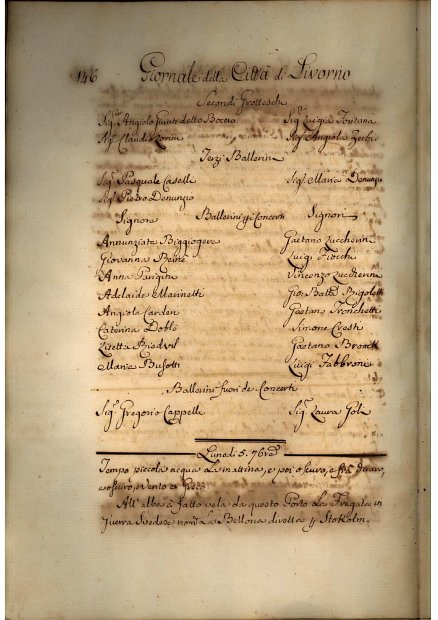 146 Giornale della Città di Livorno
Secondi Grotteschi
Sig.r Angiolo Giunti detto Sig.ra Luigia Fontana
Sig.r Claudio Sig.ra Angiola Zerbi
Terzi Ballerini
Sig.r Pasquale Caselli Sig.ra Maria Denunzio
Sig.r Pietro Denunzio
Signore Ballerini p i Concerti Signori
Annunziata Biggiogera Gaetano Zuccherini
Giovanna Luigi Fiocchi
Anna Parigini Vincenzo Zuccherini
Adelaide Marinetti Gio. Batta Bigoletti
Angiola Carden Gaetano Tronchetti
Caterina Doblò Simone
Lisetta Gaetano
Maria Busotti Luigi Fabbroni
Ballerini fuori de Concerti
Sig.r Gregorio Cappelli Sig.ra Laura Goli
Lunedì 5. 7bre
Tempo piccola acqua La mattina, e poi oscuro, e frà chiaro,
e oscuro, e vento
All' alba à fatto vela da questo Porto La Fregata in
Guerra Svedese nom.ta La Bellona diretta p Stokolm.